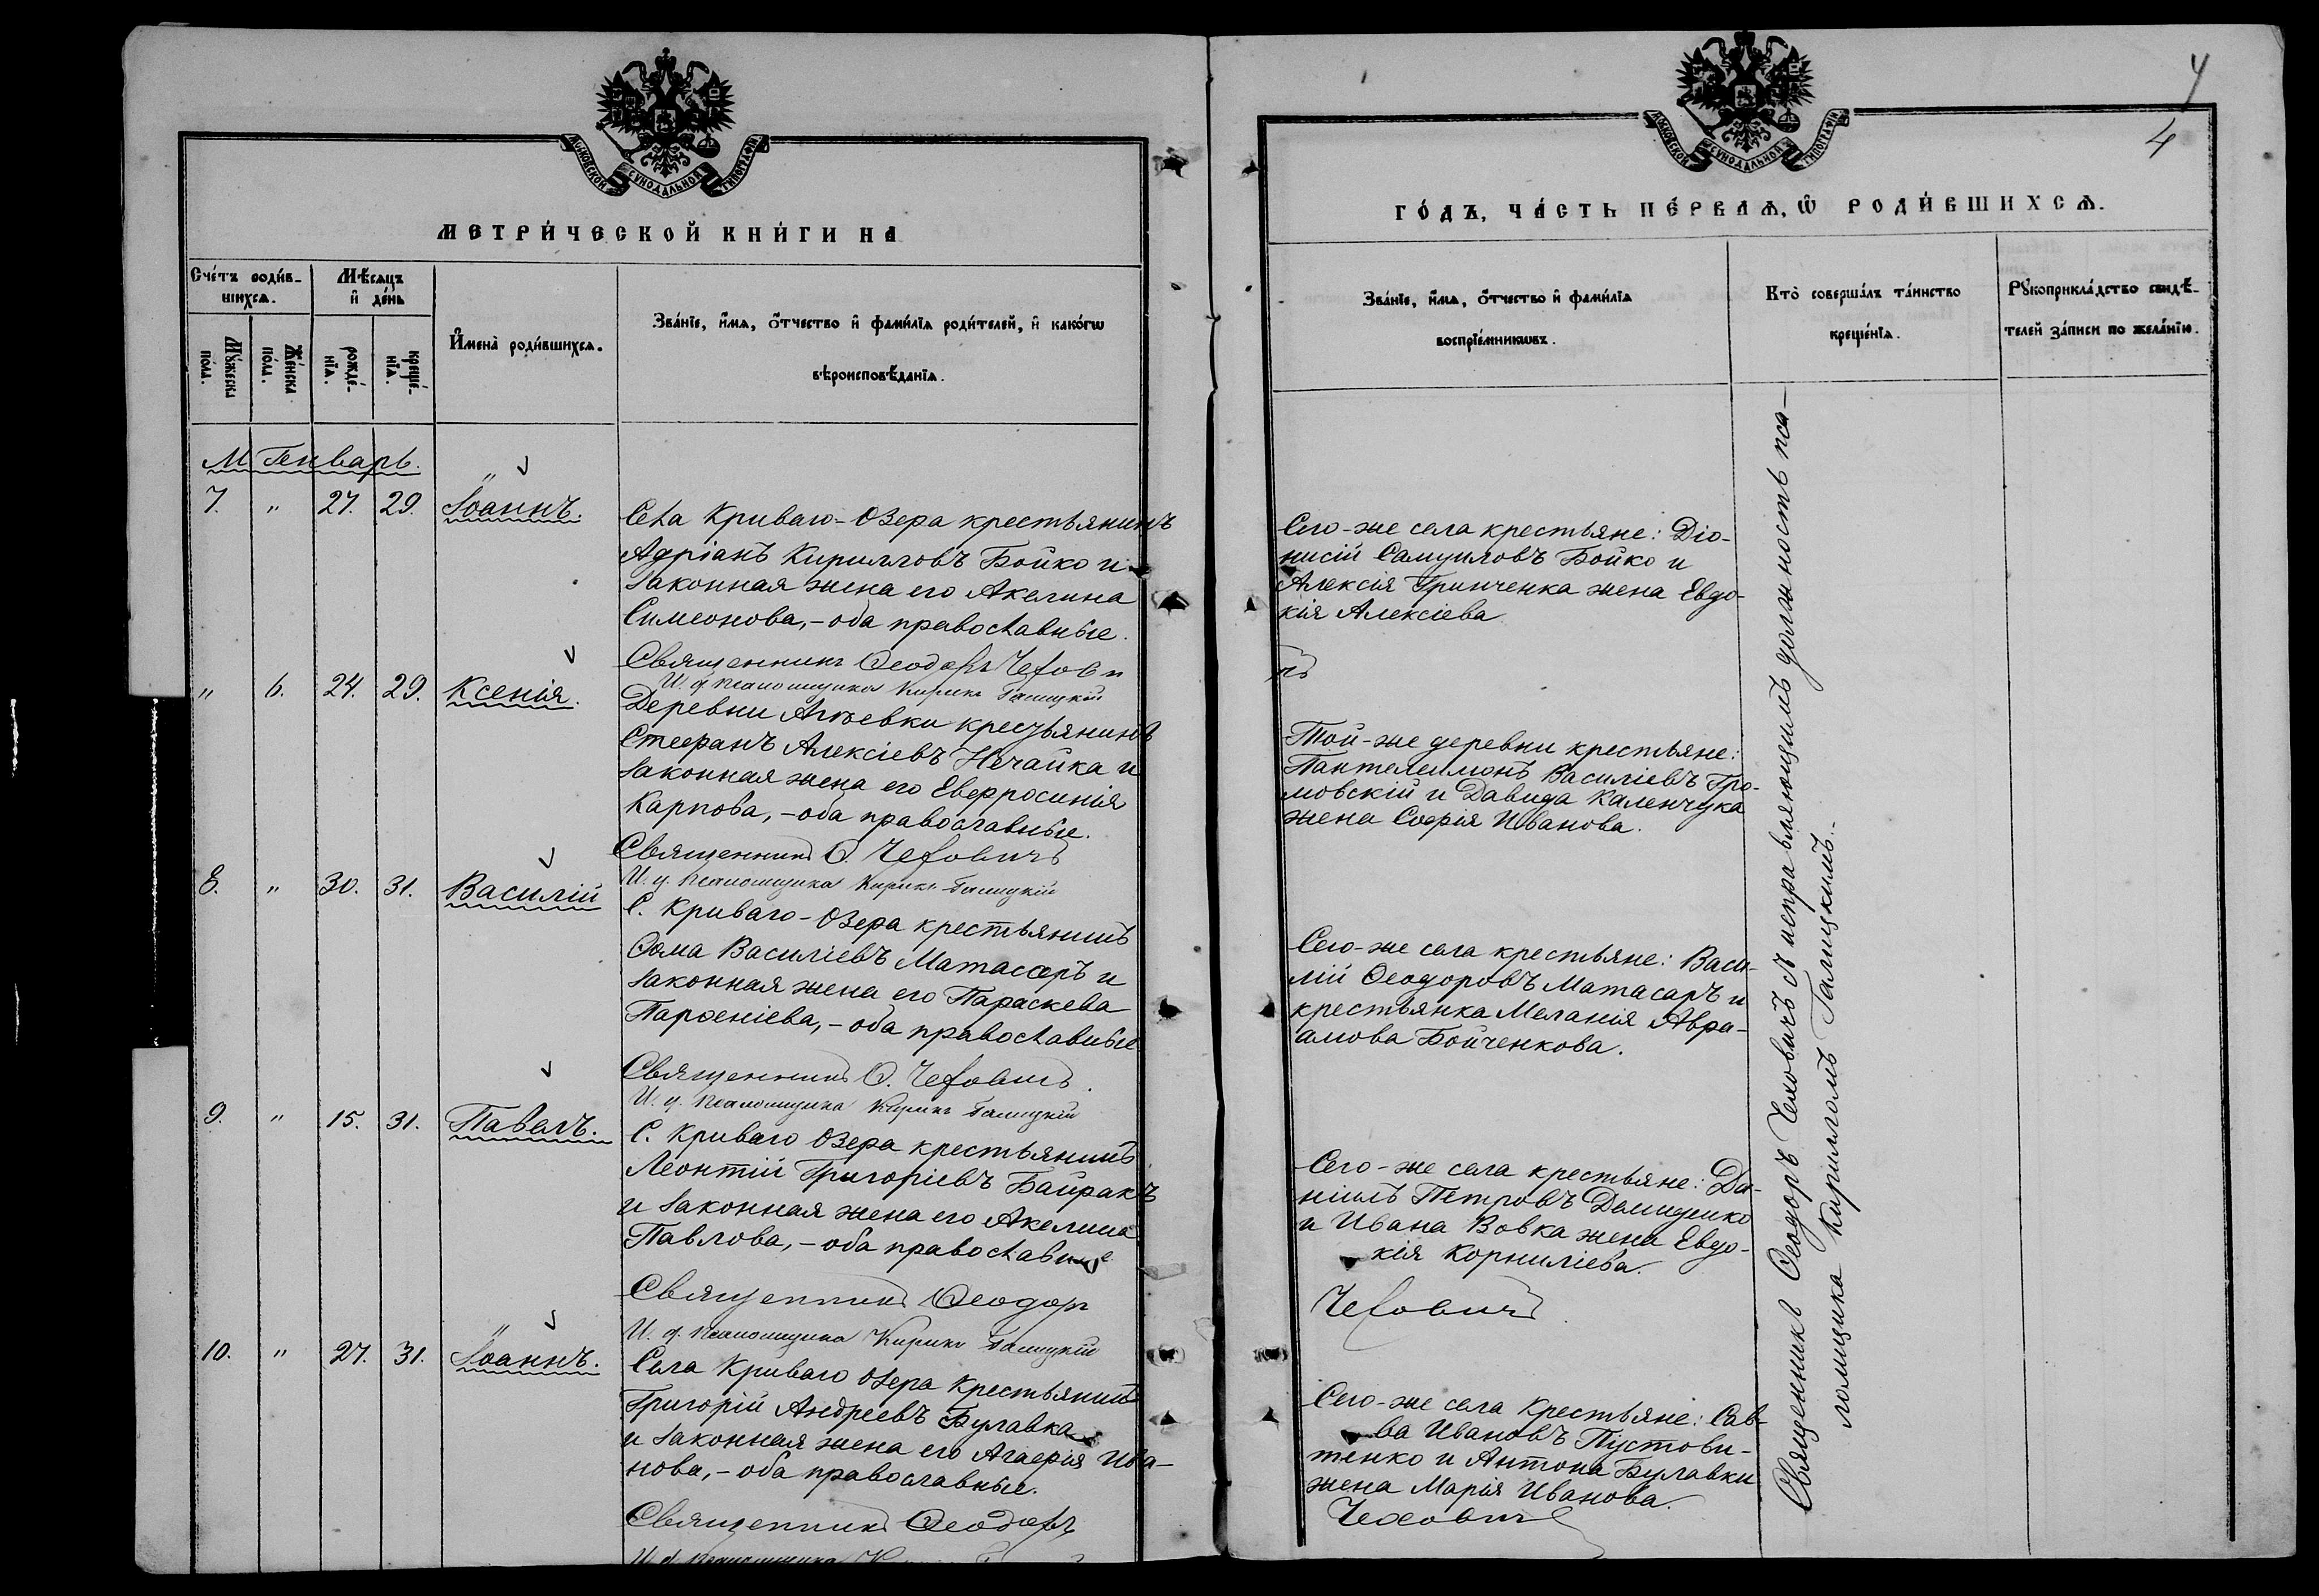 МОСКОВСКОЙ СѴНОДАЛЬНОЙ ТИПОГРАФІИ
МЕТРИ́ЧЕСКОЙ КНИ́ГИ НА
Сче́тъ роди́в-
шихсѧ.
Мѣ́сѧцъ
и҆ де́нь
И҆мена̀ роди́вшихсѧ.
Зва́нїе, и҆́мѧ, ѻ҆́тчество и҆ фамѝлїѧ роди́телей, и҆ како́гѡ
вѣроисповѣ́данїѧ.
Мꙋ́жеска
по́ла.
Же́нска
по́ла.
рожде́-
нїѧ.
креще́-
нїѧ.
М Генварь.
7. " 27. 29. Іоаннъ.
Села Криваго-Озера крестьянинъ
Адріанъ Кирилловъ Бойко и
законная жена его Акелина
Симеонова,-оба православные.
Священникъ Ѳеодоръ Чехови
И. д. псаломщика Кирилъ Галицкій
" 6. 24. 29. Ксенія.
Деревни Агѣевки крестьянинъ
Стефанъ Алексіевъ Нечайка и
законная жена его Евфросинія
Карпова,-оба православные.
Священникъ Ѳ. Чеховичъ
И. д. псаломщика Кирилъ Галицкій
8. " 30. 31. Василій
С. Криваго-Озера крестьянинъ
Ѳома Василіевъ Матасаръ и
законная жена его Параскева
Парѳеніева,-оба православные
Священникъ Ѳ. Чеховичъ.
И. д. псаломщика Кирилъ Галицкій
9. " 15. 31. Павелъ.
С. Криваго Озера крестьянинъ
Леонтій Григоріевъ Байракъ
и законная жена его Акелина
Павлова,-оба православные
Священникъ Ѳеодоръ
И. д. псаломщика Кирилъ Галицкій
10. " 27. 31. Іоаннъ.
Села Криваго Озера крестьянинъ
Григорій Андреевъ Булавка
и законная жена его Агафія Ива-
нова,-оба православные.
Священникъ Ѳеодоръ
И. д. псаломщика
4
4
МОСКОВСКОЙ СѴНОДАЛЬНОЙ ТИПОГРАФІИ
ГО́ДЪ, ЧА́СТЬ ПЕ́РВАѦ, Ѡ҆ РОДИ́ВШИХСѦ.
Зва́нїе, и҆́мѧ, ѻ҆́тчество и҆ фамѝлїѧ
воспрїе́мникѡвъ.
Кто̀ соверша́лъ та́инство
креще́нїѧ.
Рꙋкоприкла́дство свидѣ́-
телей за́писи по жела́нїю.
Сего-же села крестьяне: Діо-
нисій Самуиловъ Бойко и
Алексія Гринченка жена Евдо-
кія Алексіева
чъ
Той-же деревни крестьяне:
Пантелеимонъ Василіевъ Гро-
мовскій и Давида Каленчука
жена Софія Иванова.
Сего-же села крестьяне: Васи-
лій Ѳеодоровъ Матасаръ и
крестьянка Меланія Авра-
амова Бойченкова.
Сего-же села крестьяне: Да-
ніилъ Петровъ Демиденко
и Ивана Вовка жена Евдо-
кія Корниліева.
Чеховичъ
Сего-же села крестьяне: Сав-
ва Ивановъ Пустови-
тенко и Антона Булавки
жена Марія Иванова.
Чеховичъ
Священникъ Ѳеодоръ Чеховичъ съ исправляющимъ должность пса-
ломщика Кирилломъ Галицкимъ.-